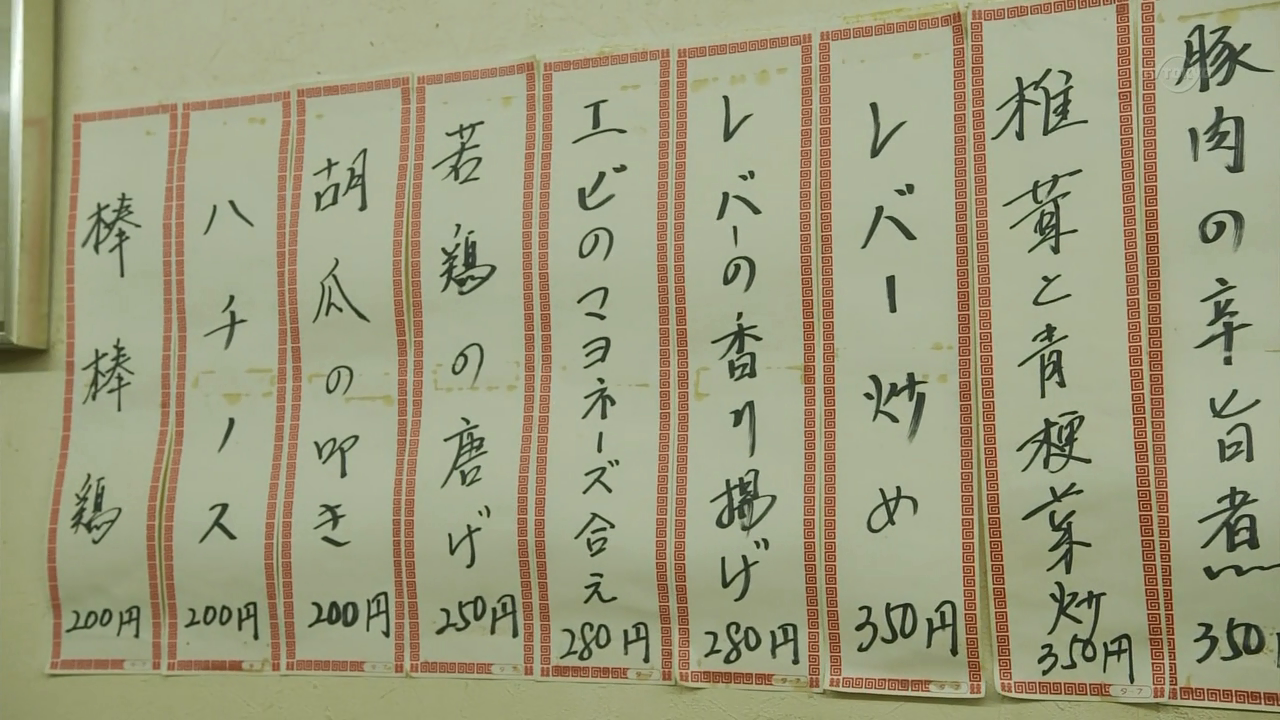 豚肉の辛旨煮
350
椎茸と青梗菜炒
350円
レバー炒め
350円
レバーの香り揚げ
280円
エビのマヨネーズ合え
280円
若鶏の唐げ
250円
胡瓜の叩き
200円
ハチノス
200円
棒棒鶏
200円